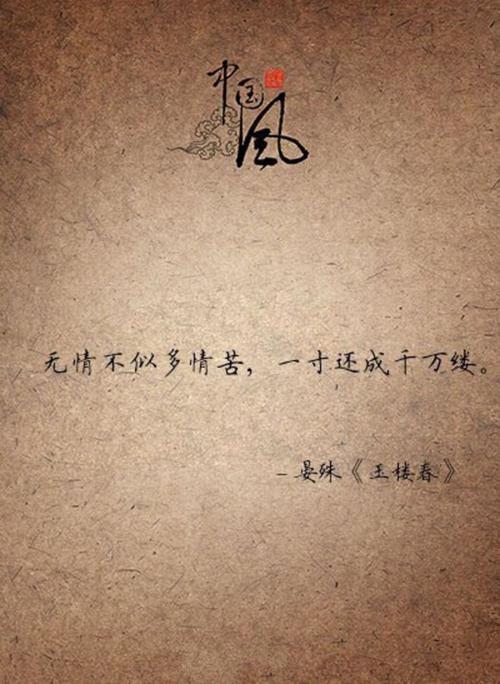 中国风
无情不似多情苦，一寸还成千万缕。
- 晏殊《玉楼春》